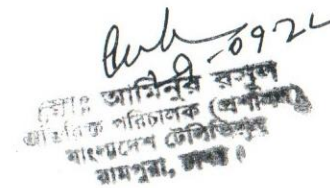 -0922
মোঃ আমিনুর রসুল
অতিরিক্ত পরিচালক (প্রশাসন)
বাংলাদেশ টেলিভিশন
রামপুরা, ঢাকা।